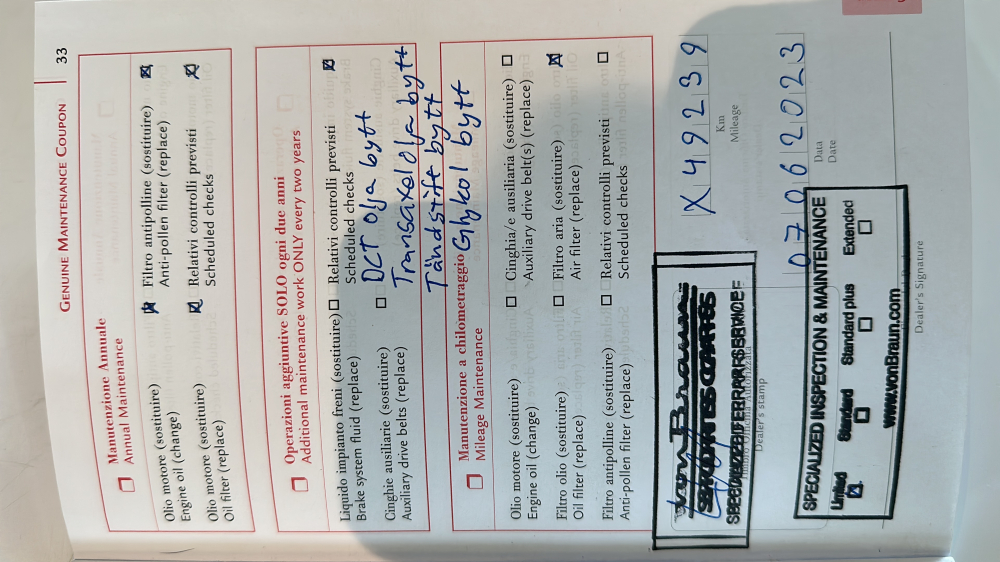 GENUINE MAINTENANCE COUPON 33
Manutenzione Annuale
Annual Maintenance
Olio motore (sostituire)
Engine oil (change)
Filtro antipolline (sostituire)
Anti-pollen filter (replace)
Olio motore (sostituire)
Oil filter (replace)
Relativi controlli previsti
Scheduled checks
Operazioni aggiuntive SOLO ogni due anni
Additional maintenance work ONLY every two years
Liquido impianto freni (sostituire)
Brake system fluid (replace)
Relativi controlli previsti
Scheduled checks
Cinghie ausiliarie (sostituire)
Auxiliary drive belts (replace)
DCT olja bytt
Transaxelolja bytt
Tändstift bytt
Glykol bytt
Manutenzione a chilometraggio
Mileage Maintenance
Olio motore (sostituire)
Engine oil (change)
Cinghia/e ausiliaria (sostituire)
Auxiliary drive belt(s) (replace)
Filtro olio (sostituire)
Oil filter (replace)
Filtro aria (sostituire)
Air filter (replace)
Filtro antipolline (sostituire)
Anti-pollen filter (replace)
Relativi controlli previsti
Scheduled checks
X49239
Km
Mileage
von Braun
Timbro Officina Autorizzata
Dealer's stamp
07062023
Data
Date
SPECIALIZED INSPECTION & MAINTENANCE
Limited Standard Standard plus Extended
www.vonBraun.com
Dealer's Signature